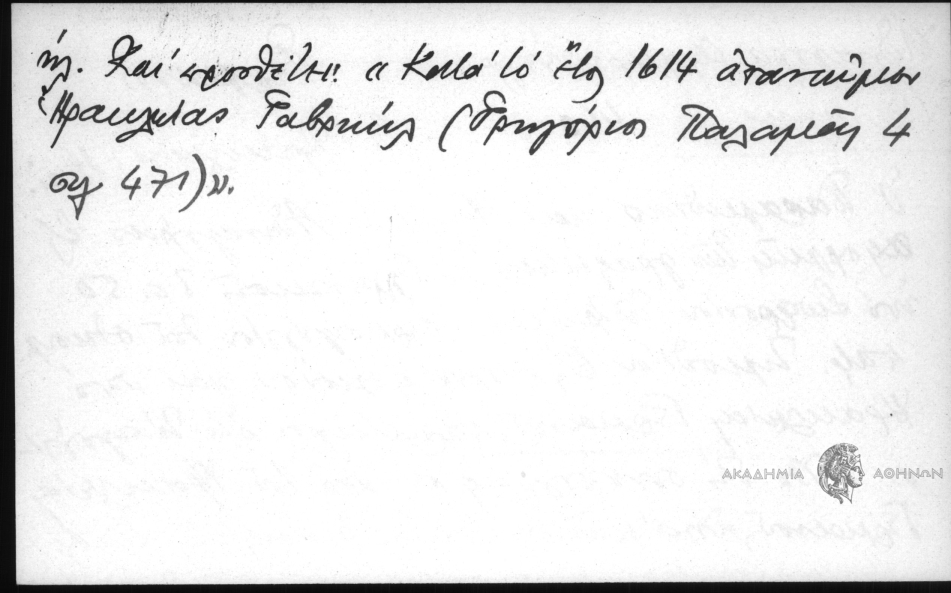 ήλ. Καί προσθέτει: « Κατά τό ἔτος 1614 ἀπαντῶμεν
Ἡρακλείας Γαβριήλ (Γρηγόριος Παλαμᾶς 4
σελ 471)».
ΑΚΑΔΗΜΙΑ ΑΘΗΝΩΝ